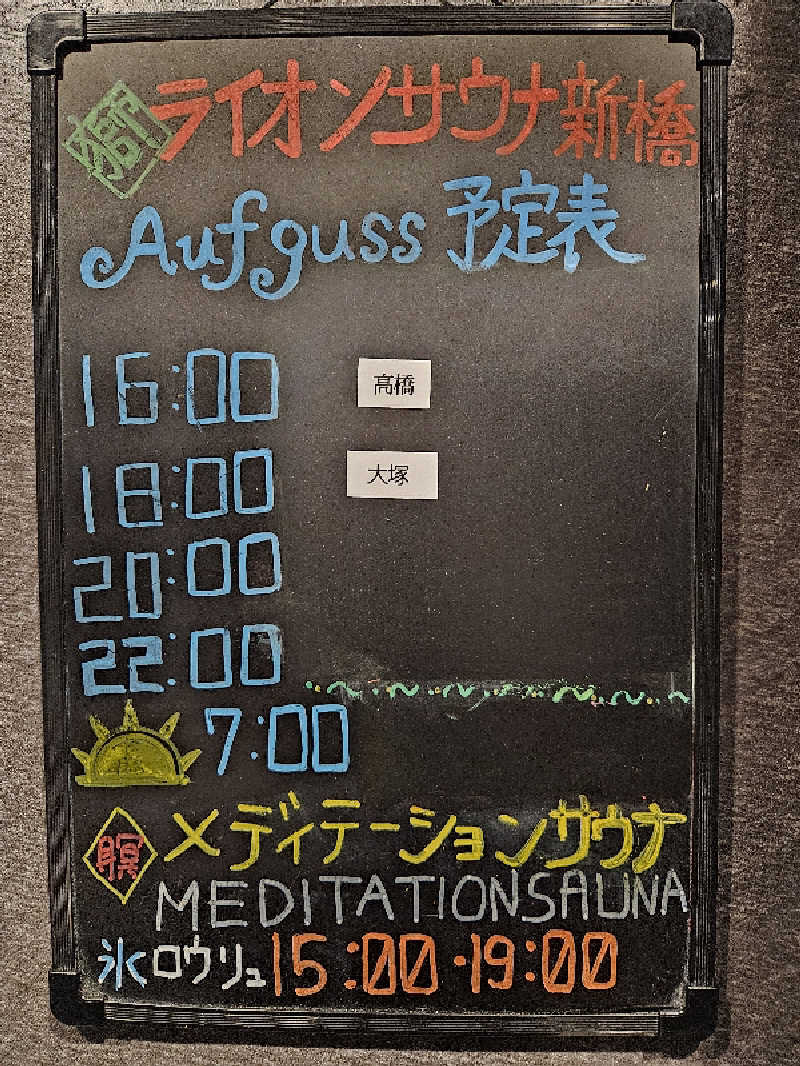 獅 ライオンサウナ新橋
Aufguss 予定表
16:00 高橋
18:00 大塚
20:00
22:00
7:00
瞑 メディテーションサウナ
MEDITATIONSAUNA
氷ロウリュ 15:00・19:00